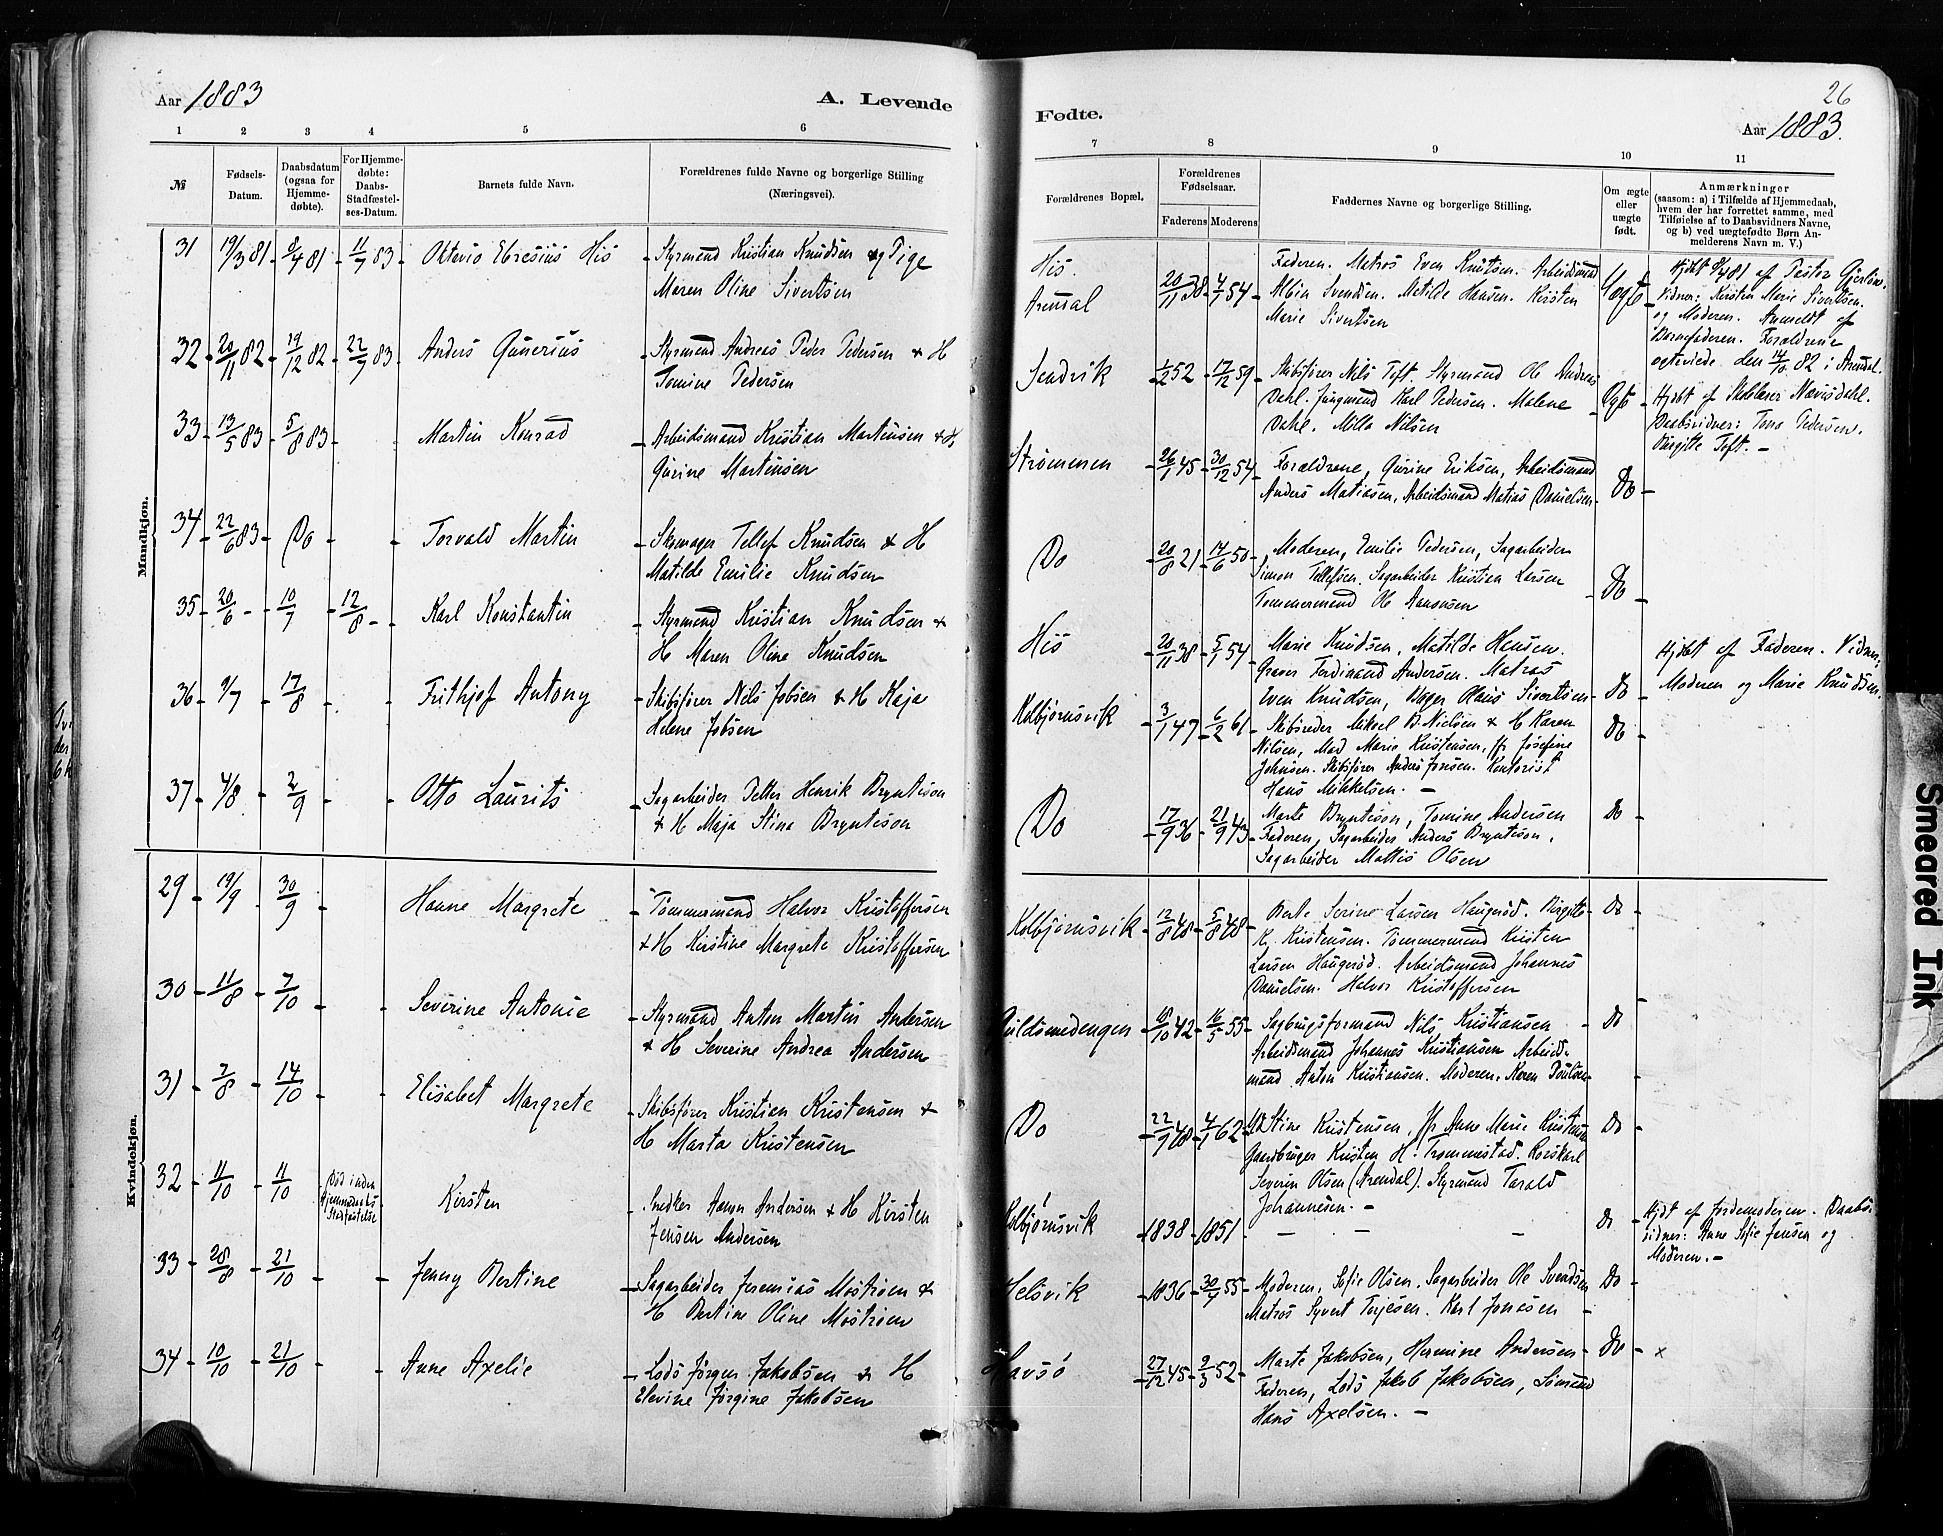 Aar 1883
A. Levende
1 2 3 4 5 6
№
Fødsels-
Datum.
Daabsdatum
(ogsaa for
Hjemme-
døbte).
For Hjemme-
døbte:
Daabs-
Stadfæstel-
ses-Datum.
Barnets fulde Navn.
Forældrenes fulde Navne og borgerlige Stilling
(Næringsvei).
Mandkjøn.
31 19/3 81 8/4 81 11/7 83 His
Styrmand Kristian Knudsen og Pige
Maren Oline Sivertsen
32 20/11 82 19/12 82 22/7 83 Anders Gunerius
Styrmand Andreas Peder Pedersen & H
Tomine Pedersen
33 13/5 83 5/8 83 Martin Konrad
Arbeidsmand Kristian Martinsen & H
Gurine Martinsen
34 22/6 83 Do Torvald Martin
Skomager Tellef Knudsen & H
Matilde Emilie Knudsen
35 20/6 10/7 12/8 Karl Konstantin
Styrmand Kristian Knudsen &
H Maren Oline Knudsen
36 9/7 17/8 Frithjof Antony
Skibsfører Nils Jobsen & H Kaja
Helene Jobsen
37 4/8 2/9 Otto Laurits
Sagarbeider Petter Henrik Bryntison
& H Maja Stina Bryntison
Kvindekjøn.
29 19/9 30/9 Hanne Margrete
Tømmermand Halvor Kristoffersen
& H Kirstine Margrete Kristoffersen
30 11/8 7/10 Severine Antonie
Styrmand Anton Martin Andersen
& H Severine Andrea Andersen
31 7/8 14/10 Elisabet Margrete
Skibsfører Kristian Kristensen &
H Marta Kristensen
32 11/10 11/10 Død inden
Hjemmedaabs
Stadfæstelse
Kirsten
Snedker Aanon Andersen & H Kirsten
Jensen Andersen
33 28/8 21/10 Jenny Bertine
Sagarbeider Jeremias Moström &
H Bertine Oline Moström
34 10/10 21/10 Anne Axelie
Lods Jørgen Jakobsen & H
Elevine Jørgine Jakobsen
26
Fødte.
Aar 1883.
7 8 9 10 11
Forældrenes Bopæl.
Forældrenes
Fødselsaar.
Faderens Moderens
Faddernes Navne og borgerlige Stilling.
Om ægte
eller
uægte
født.
Anmærkninger
(saasom: a) i Tilfælde af Hjemmedaab,
hvem der har forrettet samme, med
Tilføielse af to Daabsvidners Navne,
og b) ved uægtefødte Børn An-
melderens Navn m. V.)
His.
Arendal
20/11 38 4/1 54
Faderen. Matros Even Knutsen. Arbeidsmand
Albin Svendsen. Matilde Hansen. Kirsten
Marie Sivertsen
Uægte
Hjdbt 8/4 81 af Pastor
Vidner: Kirsten Marie Sivertsen.
og Moderen. Anmeldt af
Barnefaderen. Forældrene
ægteviede den 14/10 82 i Arendal.
Sandvik
1/2 52 17/12 59
Skibsfører Nils Toft. Styrmand Ole Andreas
Dahl. Jungmand Karl Pedersen. Malene
Dahl. Milla Nilsen
Ægte
Hjdbt af Skolelærer Nævisdahl.
Daabsvidner: Tona Pedersen.
Birgitte Toft. —
Strømmen
26/1 45 30/12 54
Forældrene, Gurine Eriksen, Arbeidsmand
Anders Matiasen, Arbeidsmand Matias Danielsen
Do
Do
20/8 21 14/6 50
Moderen, Emilie Pedersen, Sagarbeider
Simon Tellefsen. Sagarbeider Kristian Larsen
Tømmermand Ole Aanonsen
Do
His
20/11 38 5/1 54
Marie Knudsen, Matilde Hansen.
Graver Ferdinand Andersen. Matros
Even Knudsen, Hans Sivertsen
Do
Hjdbt af Faderen. Vidner;
Moderen og Marie Knudsen.
Kolbjørnsvik
3/1 47 6/2 61
Skibsreder Mikael B. Nielsen & H Karen
Nilsen, Mad Marie Kristensen, Jfr Josefine
Johnsen. Skibsfører Anders Jonsen. Kontorist
Hans Mikkelsen. —
Do
Do
17/9 36 21/9 43
Marte Bryntison, Tomine Andersen
Faderen, Sagarbeider Anders Bryntison.
Sagarbeider Mattis Olsen
Do
Kolbjørnsvik
12/8 48 5/8 48
Berte Serine Larsen Haugerød. Birgitte
K. Kristensen. Tømmermand Kristen
Larsen Haugerød. Arbeidsmand Johannes
Danielsen. Halvor Kristoffersen
Do
Guldsmedengen
42 16/5 55
Sagbrugsformand Nils Kristiansen
Arbeidsmand Johannes Kristiansen Arbeids-
mand Anton Kristiansen. Moderen. Karen Poulsen
Do
Do
22/9 48 4/1 62
Stine Kristensen, Jfr Anne Marie Kristensen
Gaardbruger Kristen H. Trommestad. Korskarl
Severin Olsen (Arendal). Styrmand Tarald
Johannesen. —
Do
Kolbjørnsvik
1838 1851
— — —
Do
Hjdt af Jordemoderen. Daabs-
vidner: Anne Sofie Jensen og
Moderen. —
Helsvik
1836 30/7 55
Moderen, Sofie Olsen. Sagarbeider Ole Svendsen
Matros Syvert Terjesen. Karl Jonesen
Do
Havsö
27/12 45 9/3 52
Marte Jakobsen, Hermine Andersen
Faderen, Lods Jakob Jakobsen, Sømand
Hans Axelsen. —
Do x
Smeared Ink